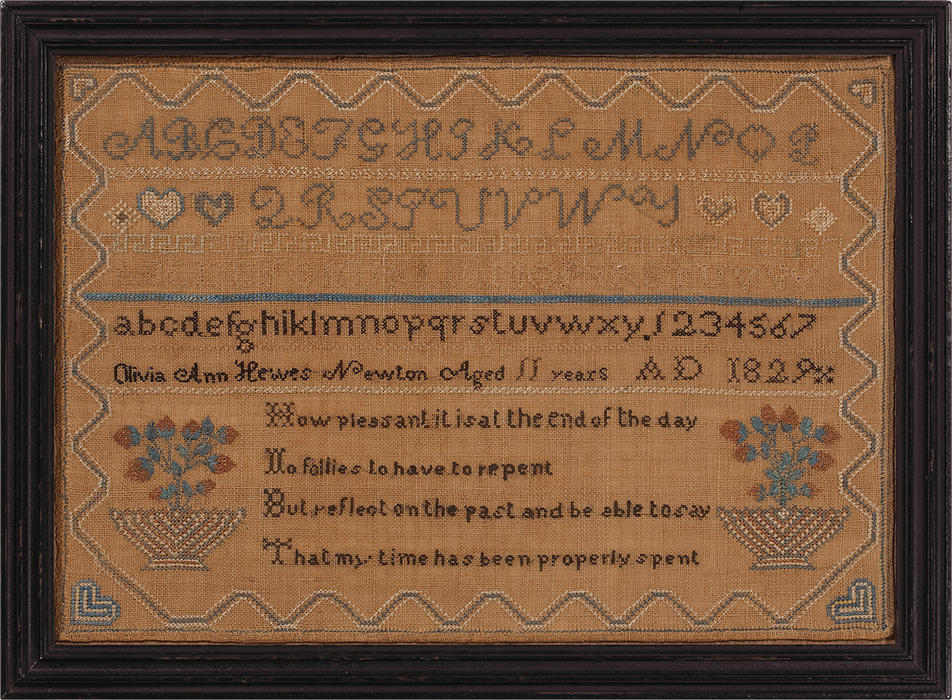 ABCDEFGHIKLMNOP
QRSTUVWY
abcdefghiklmnopqrstuvwxy.1234567
Olivia Ann Hewes Newton Aged 11 years AD 1829
How pleasant it is at the end of the day
No follies to have to repent
But reflect on the past and be able to say
That my time has been properly spent